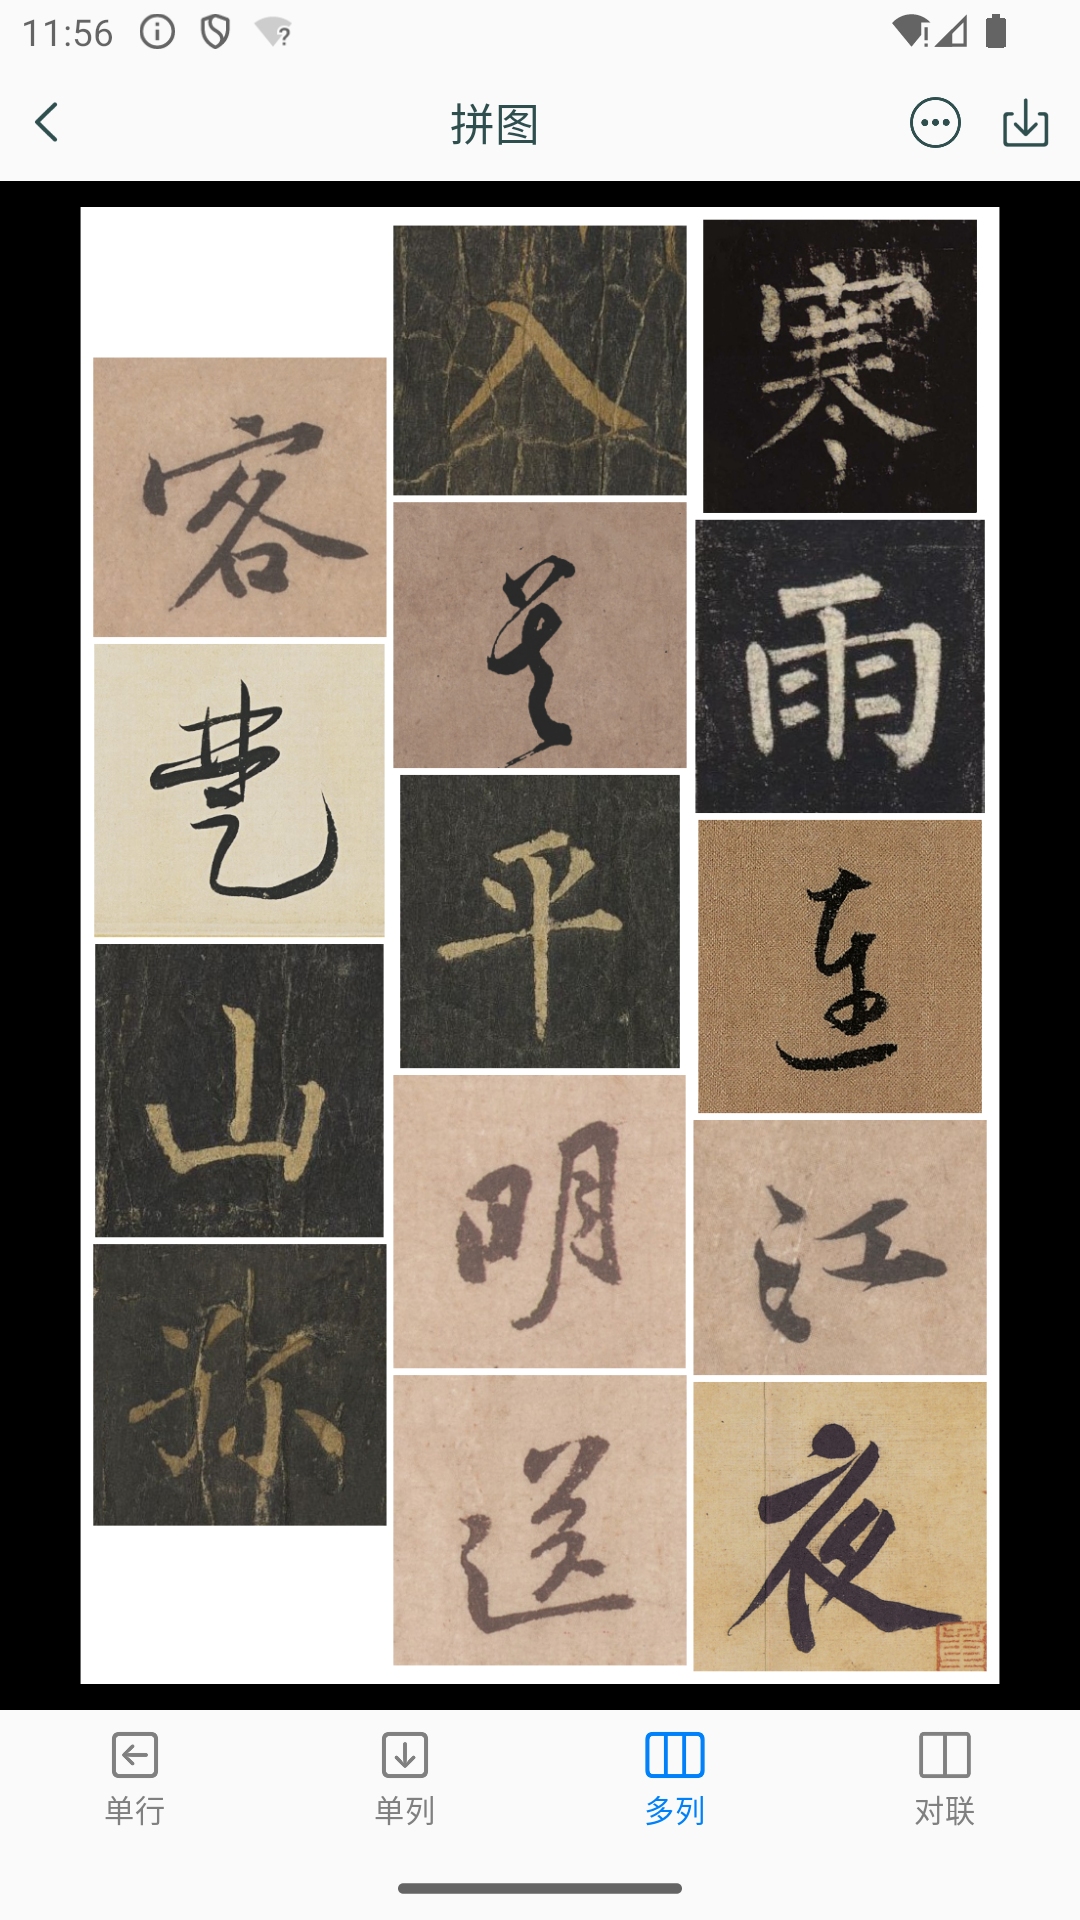 11:56
拼图
寒雨連江夜
入吳平明送
客楚山孤
单行
单列
多列
对联